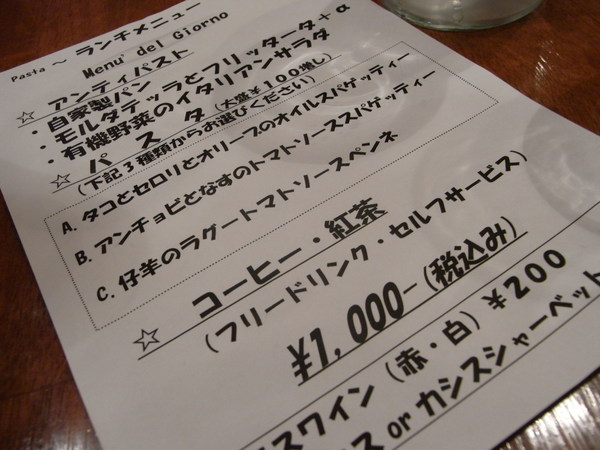 Pasta ～ ランチメニュー
Menu' del Giorno
☆ アンティパスト
・自家製パン
・モルタデッラとフリッタータ+α
・有機野菜のイタリアンサラダ
☆ パスタ (大盛¥100増し)
(下記3種類からお選びください)
A. タコとセロリとオリーブのオイルスパゲッティー
B. アンチョビとなすのトマトソーススパゲッティー
C. 仔羊のラグートマトソースペンネ
☆ コーヒー・紅茶
(フリードリンク・セルフサービス)
¥1,000-(税込み)
スワイン (赤・白) ¥200
ス or カシスシャーベット